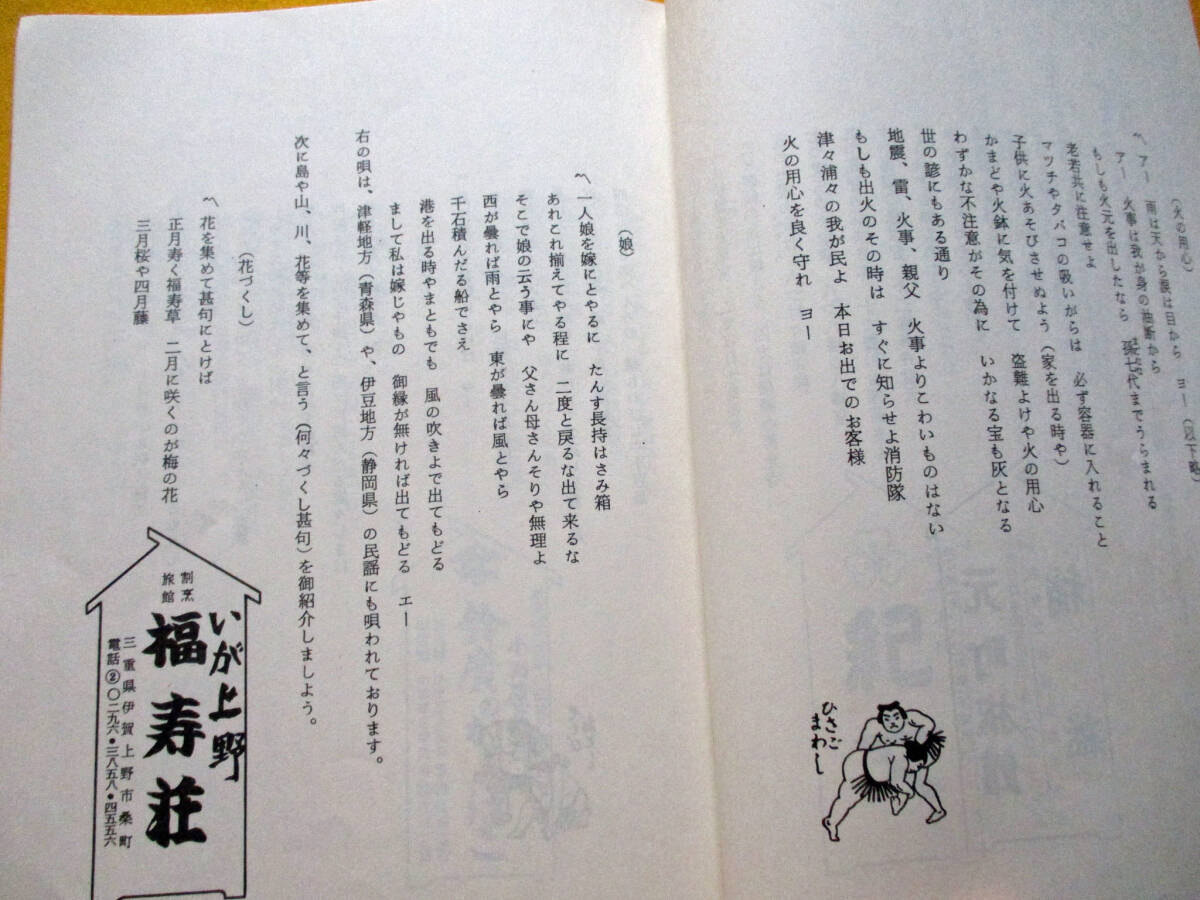 (火の用心)
アー 雨は天から涙は目から ヨー(以下略)
アー 火事は我が身の油断から
もしも火元を出したなら 孫七代までうらまれる
老若共に注意せよ
マッチやタバコの吸いがらは 必ず容器に入れること
子供に火あそびさせぬよう(家を出る時や)
かまどや火鉢に気を付けて 盗難よけや火の用心
わずかな不注意がその為に いかなる宝も灰となる
世の諺にもある通り
地震、雷、火事、親父 火事よりこわいものはない
もしも出火のその時は すぐに知らせよ消防隊
津々浦々の我が民よ 本日お出でのお客様
火の用心を良く守れ ヨー
ひさご
まわし
(娘)
一人娘を嫁にとやるに たんす長持はさみ箱
あれこれ揃えてやる程に 二度と戻るな出て来るな
そこで娘の云う事にや 父さん母さんそりや無理よ
西が曇れば雨とやら 東が曇れば風とやら
千石積んだる船でさえ
港を出る時やまともでも 風の吹きよで出てもどる
まして私は嫁じやもの 御縁が無ければ出てもどる エー
右の唄は、津軽地方(青森県)や、伊豆地方(静岡県)の民謡にも唄われております。
次に島や山、川、花等を集めて、と言う(何々づくし甚句)を御紹介しましよう。
(花づくし)
花を集めて甚句にとけば
正月寿く福寿草 二月に咲くのが梅の花
三月桜や四月藤
いが上野
割烹
旅館
福寿荘
三重県伊賀上野市桑町
電話②〇二九六・三八五八・四五五六